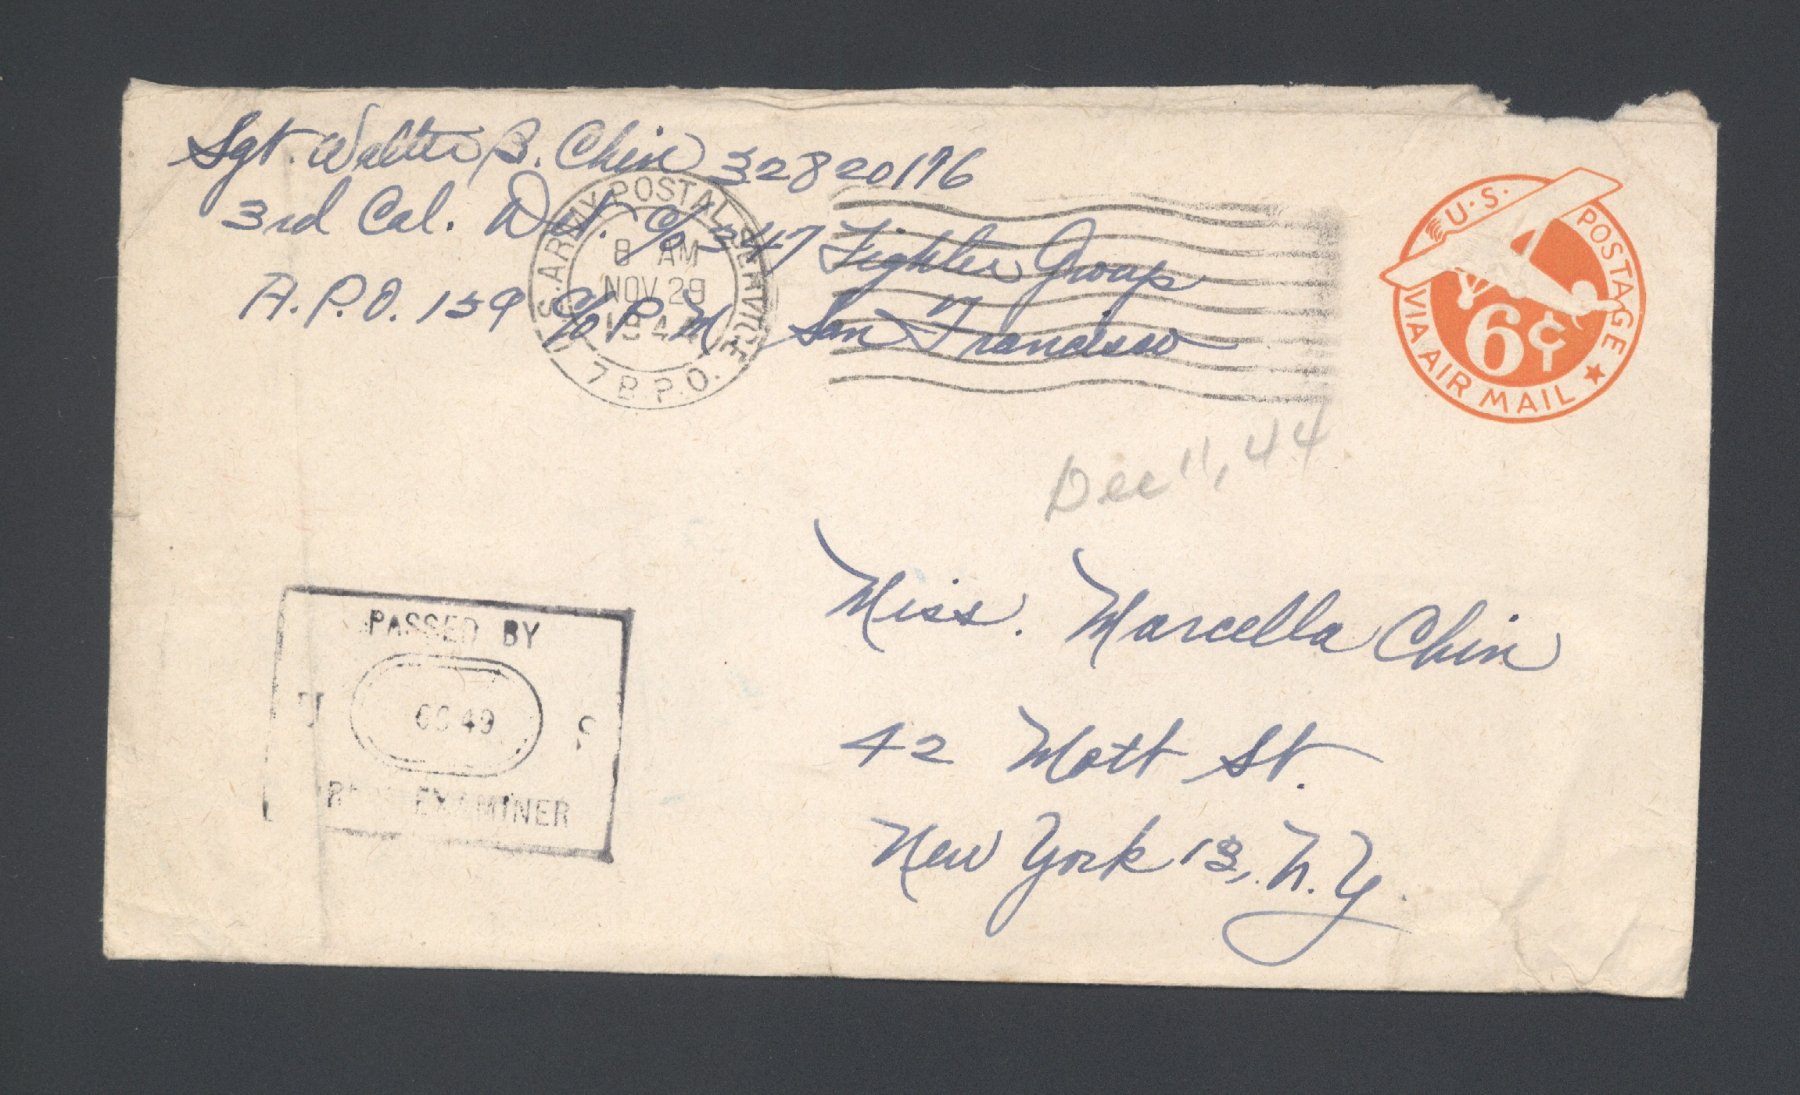 Sgt. Walter B. Chin 32820196
3rd Cal. Det. c/o 347 Fighter Group
A.P.O. 159 c/o P.M. San Francisco
U.S. ARMY POSTAL SERVICE
8 AM
NOV 29
1944
7 B.P.O.
U.S. POSTAGE
6¢
VIA AIR MAIL
Dec 11, 44
Miss. Marcella Chin
42 Mott St.
New York 13, N.Y.
PASSED BY
U S
EXAMINER